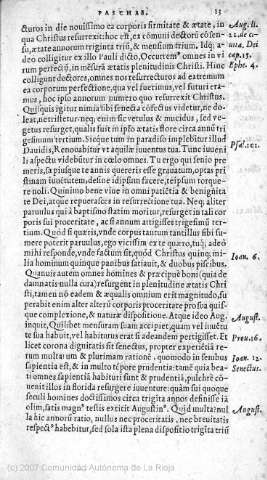 PASCHAE. 15
cturos in die nouissimo ea corporis firmitate & ætate, in
qua Christus resurrexit: hoc est, ex cõmuni doctorũ cõsẽ-
su, ætate annorum triginta triũ, & mensium trium. Idq; a-
deo colligitur ex illo Pauli dicto, Occurremº omnes in vi-
rum perfectũ, in mẽsurã ætatis plenitudinis Christi. Hinc
colligunt doctores, omnes nos resurrecturos ad extremum
ea corporum perfectione, qua vel fuerimus, vel futuri era-
mus, hoc ipso annorum numero quo resurrexit Christus.
Quilibet igitur nimia sibi senecta cõfectus videtur, ne do-
leat, ne tristetur: neq; enim sic vetulus & mucidus, sed ve-
getus resurget, qualis fuit in ipso ætatis flore circa annũ tri
gesimum tertium. Sicque tum in paradiso implebitur illud
Dauidis, Renouabitur vt aquilæ iuuentus tua. Tunc iuueni
li aspectu videbitur in cœlo omnes. Tu ergo qui senio pre
meris, sæpiusque te annis quereris esse grauatum, optas pri
stinam iuuentutem, desine id ipsum facere, teipsum torque
re noli. Quinimo bene viue in omni patiẽtia & benignita
te Dei, atque repuerasces in resurrectione tua. Neq; aliter
paruulus qui à baptismo statim moritur, resurget in tali cor
poris sui proceritate, ac si annum attigisset trigesimũ ter-
tium. Quòd si quæris, vnde corpus tantum tantillus sibi su-
mere poterit paruulus, ego vicissim ex te quæro, tuq; adeò
mihi responde, vnde factum sit, quòd Christus quinq; mi-
lia hominum quinque panibus satiauit, & duobus piscibus.
Quamuis autem omnes homines (& præcipuè boni (quia de
damnatis nulla cura) resurgent in plenitudine ætatis Chri
sti, tamen nõ eadem & æqualis omnium erit magnitudo, su
perabit enim alter alterũ corporis proceritate pro sua quis-
que complexione, & naturæ dispositione. Atque ideo Aug.
inquit, Quilibet mensuram suam accipiet, quam vel iuuẽtu
te sua habuit, vel habiturus erat si ad eandem pertigisset. Et
licet corona dignitatis sit senectus, propter experiẽtia re-
rum multarum & plurimam rationẽ, quomodo in senibus
sapientia est, & in multo tẽpore prudentia: tamẽ quia bea-
ti omnes sapientia habituri sunt & prudentiã, pulchrè cõ-
uenit illos in florida resurgere iuuentute: quàm sui quoque
seculi homines doctissimos circa trigita annos definisse iã
olim, satis magnº testis existit Augustinº. Quid multa? nul
la hic annorũ ratio, nullus nec proceritatis, nec breuitatis
respectº habebitur, sed sola ista plena dispositio trigita triũ
Aug. li.
22. de ci-
uita. Dei
cap. 15.
Ephe. 4.
Psal. 102.
Ioan. 6.
August.
Prou. 16.
Senectus.
August.
(c) 2007 Comunidad Autónoma de La Rioja